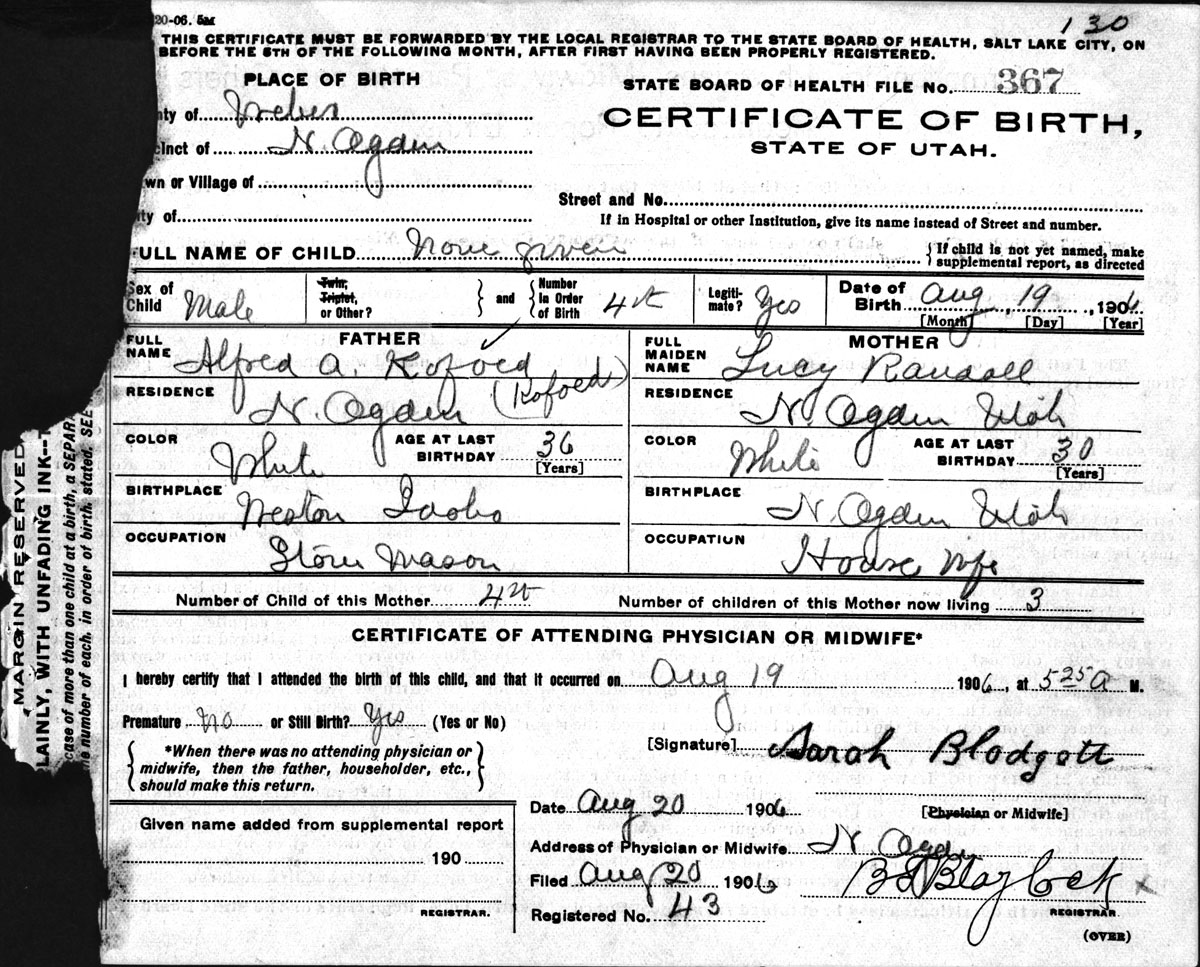 20-06. 5M
130
THIS CERTIFICATE MUST BE FORWARDED BY THE LOCAL REGISTRAR TO THE STATE BOARD OF HEALTH, SALT LAKE CITY, ON
BEFORE THE 5TH OF THE FOLLOWING MONTH, AFTER FIRST HAVING BEEN PROPERLY REGISTERED.
PLACE OF BIRTH
STATE BOARD OF HEALTH FILE NO. 367
nty of Weber
CERTIFICATE OF BIRTH,
cinct of N. Ogden
STATE OF UTAH.
wn or Village of
Street and No.
ity of
If in Hospital or other Institution, give its name instead of Street and number.
FULL NAME OF CHILD None given {If child is not yet named, make
supplemental report, as directed
Sex of Child Male Twin, Triplet, or Other? } and { Number In Order of Birth 4th Legiti-mate? Yes Date of Birth Aug, 19, 1906.
[Month] [Day] [Year]
FATHER
MOTHER
FULL NAME Alfred A. Kofoed
FULL MAIDEN NAME Lucy Randall
RESIDENCE N. Ogden (Kofoed)
RESIDENCE N. Ogden Utah
COLOR White AGE AT LAST BIRTHDAY 36 [Years]
COLOR White AGE AT LAST BIRTHDAY 30 [Years]
BIRTHPLACE Weston Idaho
BIRTHPLACE N. Ogden Utah
OCCUPATION Stone Mason
OCCUPATION House Wife
Number of Child of this Mother 4th Number of children of this Mother now living 3
CERTIFICATE OF ATTENDING PHYSICIAN OR MIDWIFE*
I hereby certify that I attended the birth of this child, and that it occurred on Aug 19 1906, at 5 25 A M.
Premature No or Still Birth? Yes (Yes or No)
*When there was no attending physician or
midwife, then the father, householder, etc.,
should make this return.
[Signature] Sarah Blodgett
Date Aug 20 1906
[Physician or Midwife]
Given name added from supplemental report
Address of Physician or Midwife N. Ogden
190
Filed Aug 20 1906 Blaylock
REGISTRAR.
REGISTRAR.
Registered No. 43
(OVER)
MARGIN RESERVED
LAINLY, WITH UNFADING INK--T
case of more than one child at a birth, a SEPAR
he number of each, in order of birth, stated. SEE